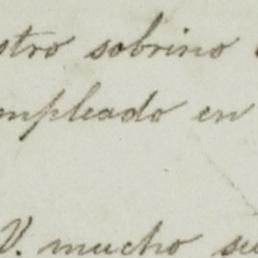 stro sobrino
mpleado en
V. mucho su